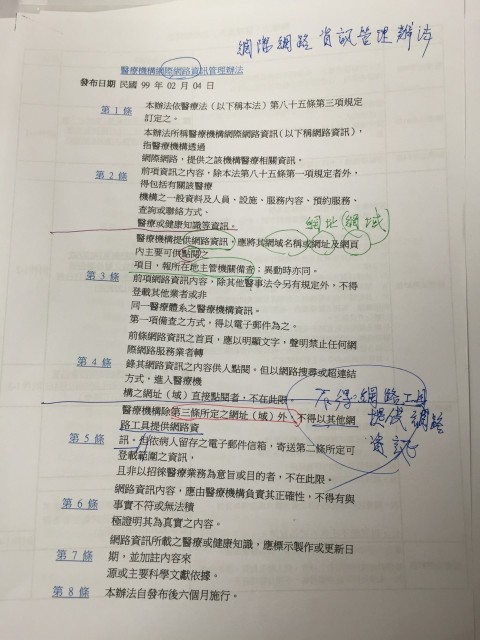 網際網路資訊管理辦法
醫療機構網際網路資訊管理辦法
發布日期 民國 99 年 02 月 04 日
第 1 條
本辦法依醫療法（以下稱本法）第八十五條第三項規定
訂定之。
本辦法所稱醫療機構網際網路資訊（以下稱網路資訊），
指醫療機構透過
網際網路，提供之該機構醫療相關資訊。
第 2 條
前項資訊之內容，除本法第八十五條第一項規定者外，
得包括有關該醫療
機構之一般資料及人員、設施、服務內容、預約服務、
查詢或聯絡方式、
醫療或健康知識等資訊。
網址(網域)
醫療機構提供網路資訊，應將其網域名稱或網址及網頁
內主要可供點閱之
項目，報所在地主管機關備查；異動時亦同。
第 3 條
前項網路資訊內容，除其他醫事法令另有規定外，不得
登載其他業者或非
同一醫療體系之醫療機構資訊。
第一項備查之方式，得以電子郵件為之。
前條網路資訊之首頁，應以明顯文字，聲明禁止任何網
際網路服務業者轉
第 4 條
錄其網路資訊之內容供人點閱。但以網路搜尋或超連結
方式，進入醫療機
構之網址（域）直接點閱者，不在此限。
不得網路工具
提供網路
資訊
醫療機構除第三條所定之網址（域）外，不得以其他網
路工具提供網路資
第 5 條
訊。但依病人留存之電子郵件信箱，寄送第二條所定可
登載範圍之資訊，
且非以招徠醫療業務為意旨或目的者，不在此限。
網路資訊內容，應由醫療機構負責其正確性，不得有與
第 6 條
事實不符或無法積
極證明其為真實之內容。
網路資訊所載之醫療或健康知識，應標示製作或更新日
第 7 條
期，並加註內容來
源或主要科學文獻依據。
第 8 條
本辦法自發布後六個月施行。